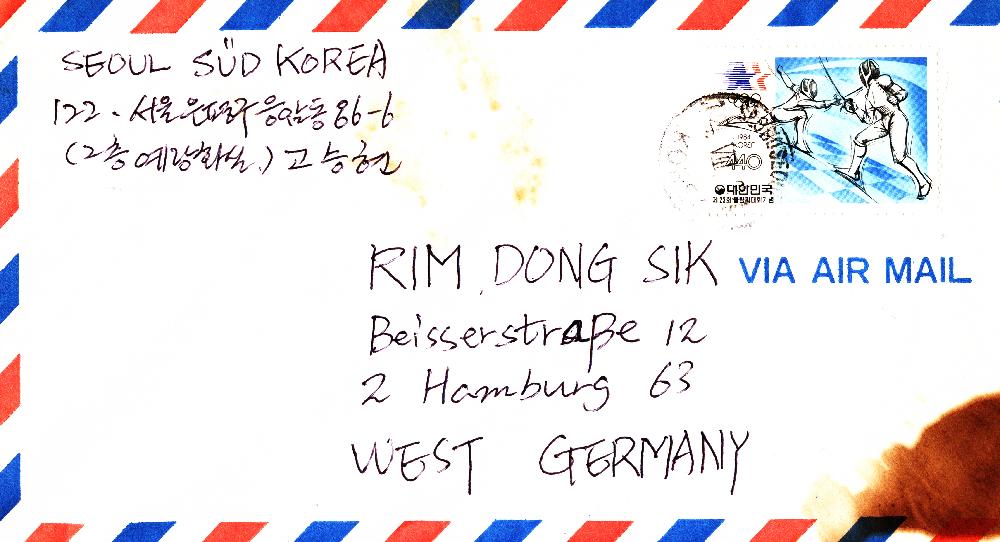 SEOUL SÜD KOREA
122. 서울 은평구 응암동 86-6
(2층 예랑화실.) 고승현
1984
440
대한민국
제23회 올림픽대회기념
RIM DONG SIK
VIA AIR MAIL
Beisserstraße 12
2 Hamburg 63
WEST GERMANY